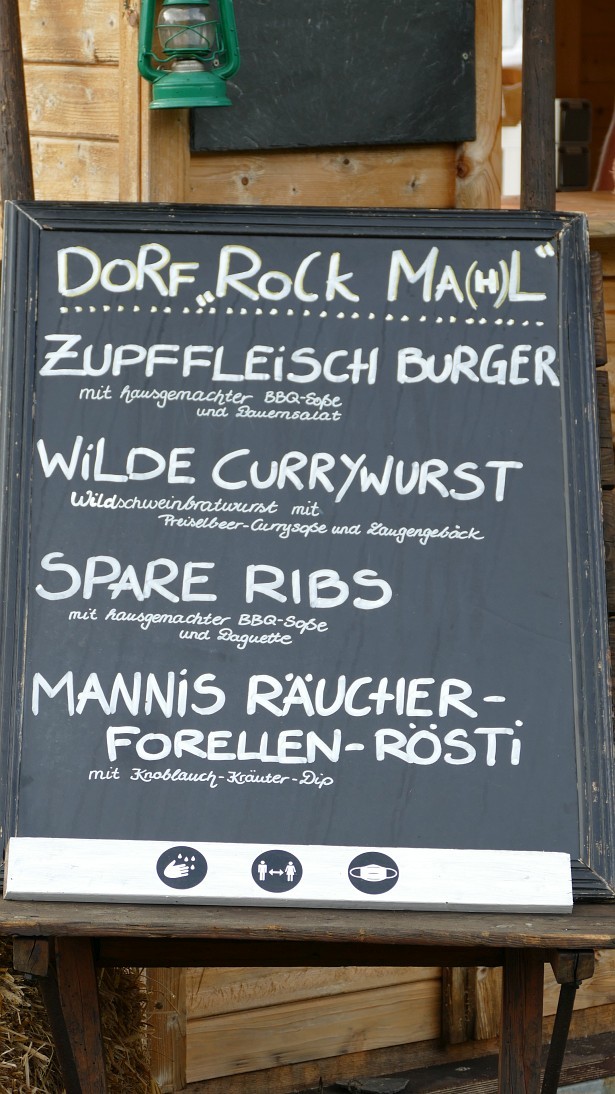 DORF „ROCK MA(H)L“
ZUPFFLEISCH BURGER
mit hausgemachter BBQ-Soße
und Bauernsalat
WILDE CURRYWURST
Wildschweinbratwurst mit
Preiselbeer-Currysoße und Laugengebäck
SPARE RIBS
mit hausgemachter BBQ-Soße
und Baguette
MANNIS RÄUCHER-
FORELLEN-RÖSTI
mit Knoblauch-Kräuter-Dip